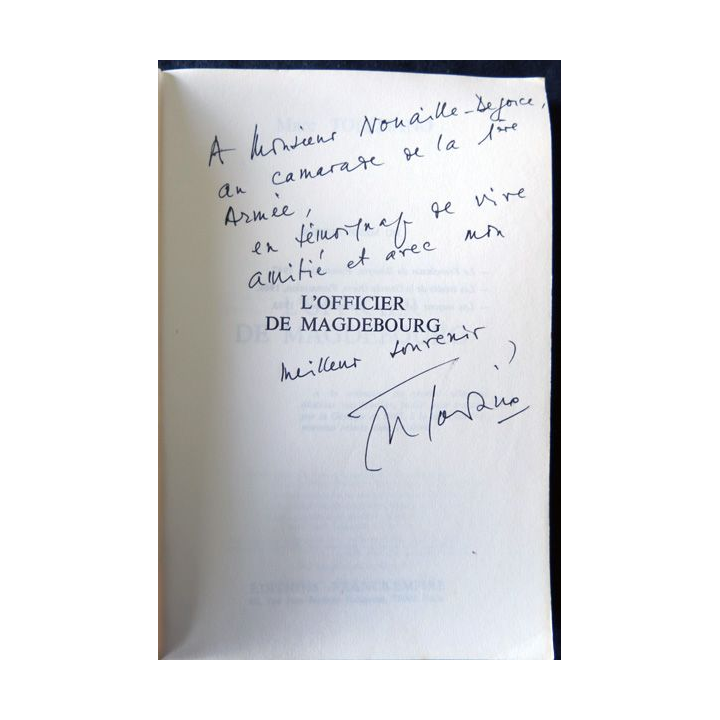 A Monsieur Nouaille-Degorce,
au camarade de la 1ère
Armée,
en témoignage de vive
amitié et avec mon
L'OFFICIER
DE MAGDEBOURG
meilleur souvenir